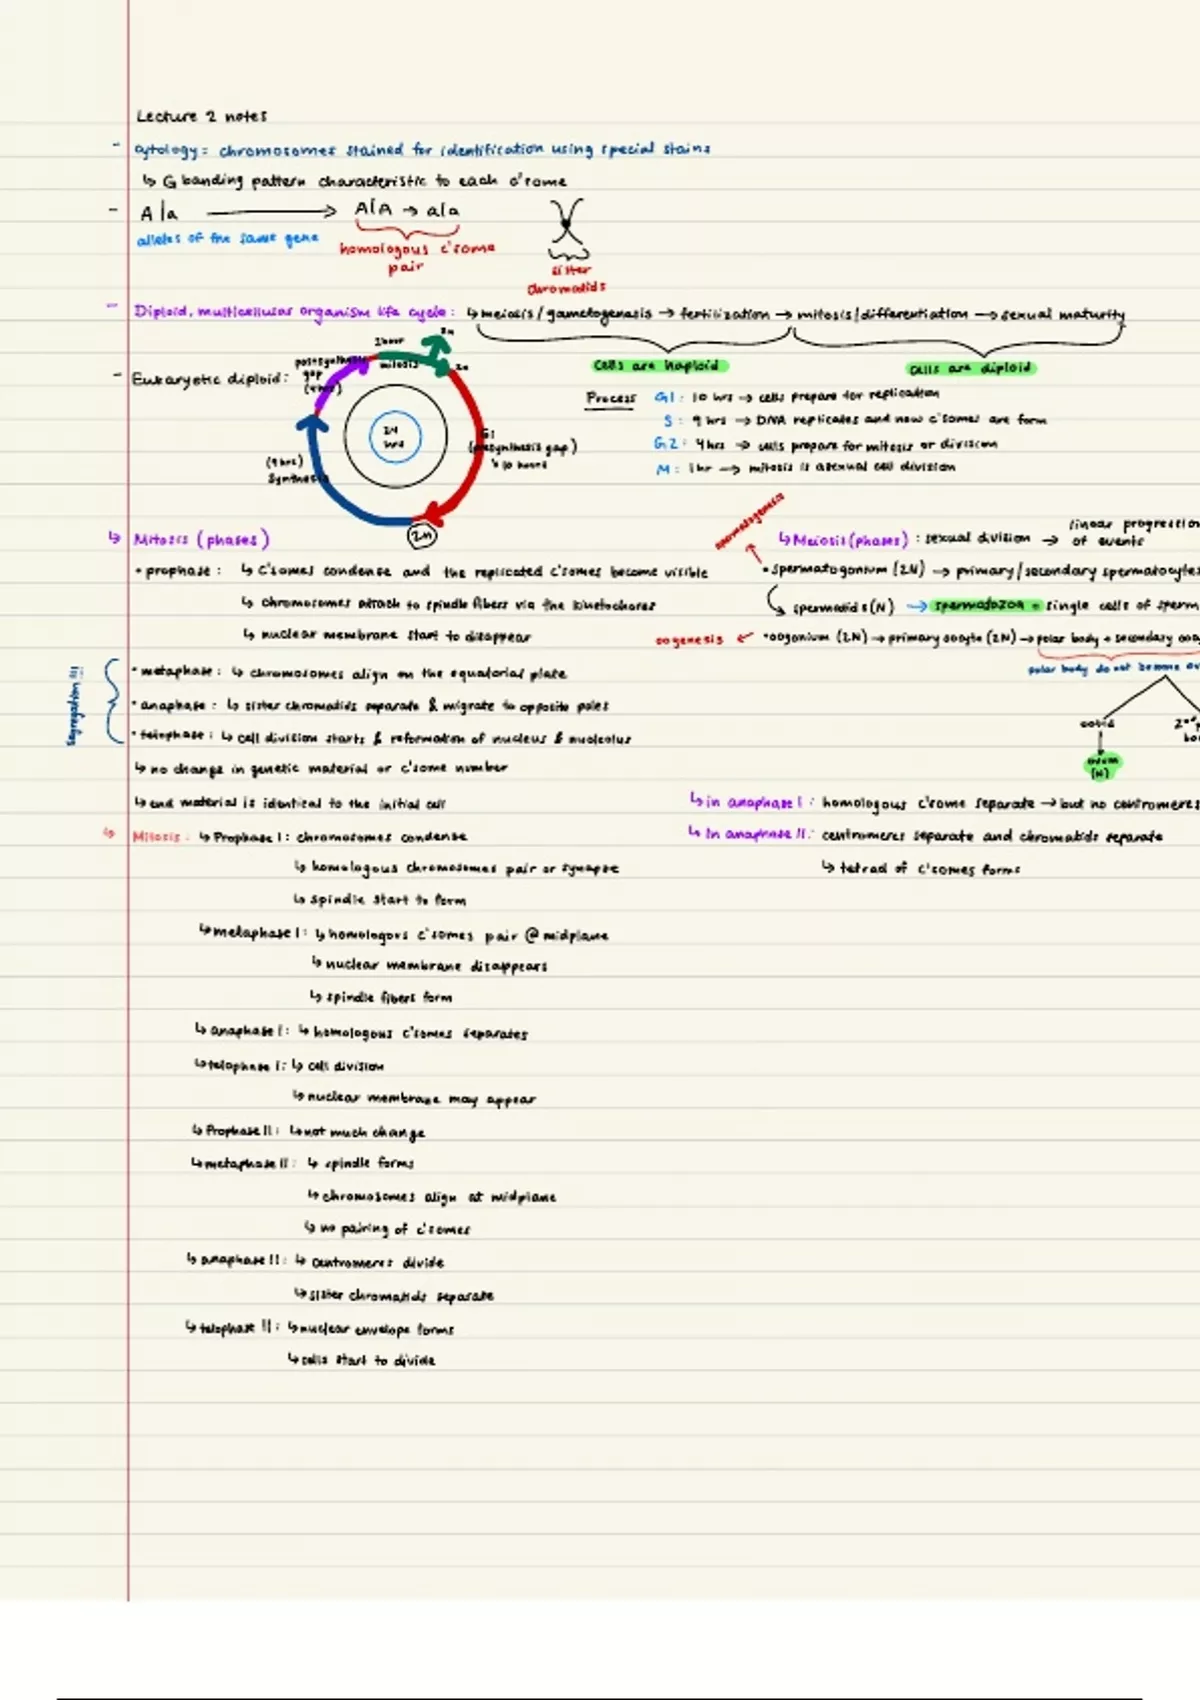 Lecture 2 notes
- cytology = chromosomes stained for identification using special stains
↳ G banding pattern characteristic to each c'some
- A|a → A|A → a|a
alleles of the same gene
homologous c'some
pair
sister
chromatids
- Diploid, multicellular organism life cycle: ↳ meiosis/gametogenesis → fertilization → mitosis/differentiation → sexual maturity
cells are haploid
cells are diploid
- Eukaryotic diploid:
1 hour
mitosis
2n
2n
postsynthesis
gap
(4 hrs)
24
hrs
G1
(presynthesis gap)
10 hours
(9 hrs)
Synthesis
2n
Process G1: 10 hrs → cells prepare for replication
S: 9 hrs → DNA replicates and new c'somes are form
G2: 4 hrs → cells prepare for mitosis or division
M: 1 hr → mitosis is asexual cell division
↳ Mitosis (phases)
• prophase: ↳ c'somes condense and the replicated c'somes become visible
↳ chromosomes attach to spindle fibers via the kinetochores
↳ nuclear membrane start to disappear
Segregation
• metaphase: ↳ chromosomes align on the equatorial plate
• anaphase: ↳ sister chromatids separate & migrate to opposite poles
• telophase: ↳ cell division starts & reformation of nucleus & nucleolus
↳ no change in genetic material or c'some number
↳ end material is identical to the initial cell
spermatogenesis
↳ Meiosis (phases): sexual division → linear progression
of events
• spermatogonium (2N) → primary/secondary spermatocytes
spermatids (N) → spermatozoa = single cells of sperm
oogenesis ← • oogonium (2N) → primary oocyte (2N) → polar body + secondary
polar body do not become
ootid
ovum
(N)
↳ in anaphase I: homologous c'some separate → but no centromeres
↳ In anaphase II: centromeres separate and chromatids separate
↳ tetrad of c'somes forms
↳ Mitosis: ↳ Prophase I: chromosomes condense
↳ homologous chromosomes pair or synapse
↳ spindle start to form
↳ metaphase I: ↳ homologous c'somes pair @ midplane
↳ nuclear membrane disappears
↳ spindle fibers form
↳ anaphase I: ↳ homologous c'somes separates
↳ telophase I: ↳ cell division
↳ nuclear membrane may appear
↳ Prophase II: ↳ not much change
↳ metaphase II: ↳ spindle forms
↳ chromosomes align at midplane
↳ no pairing of c'somes
↳ anaphase II: ↳ centromeres divide
↳ sister chromatids separate
↳ telophase II: ↳ nuclear envelope forms
↳ cells start to divide